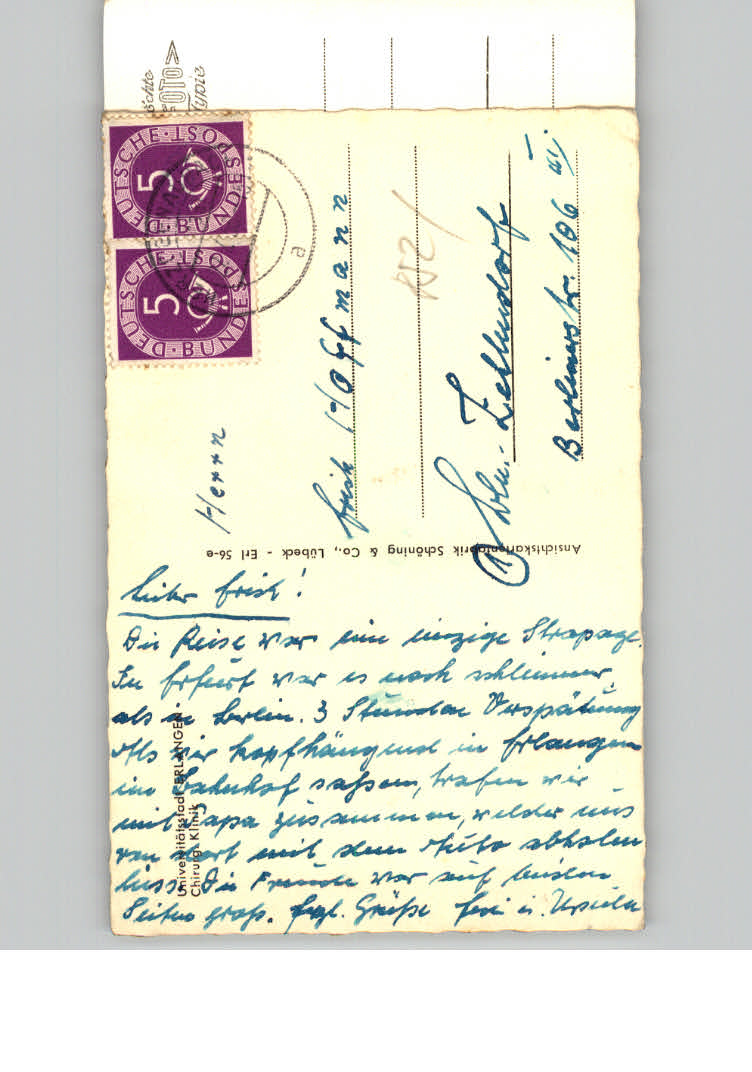 Echte
FOTO
Typie
DEUTSCHE BUNDESPOST
5
DEUTSCHE BUNDESPOST
5
a
Herrn
Erich Hoffmann
Bln.- Zehlendorf
Berlinerstr. 106 III
1
Ansichtskartenfabrik Schöning & Co., Lübeck - Erl 56-e
Universitätsstadt ERLANGEN
Chirurg. Klinik
Lieber Erich!
Die Reise war eine einzige Strapaze.
In Erfurt war es noch schlimmer,
als in Berlin. 3 Stunden Verspätung
Als wir kopfhängend in Erlangen
im Bahnhof sassen, trafen wir
mit Papa zusammen, welcher uns
von dort mit dem Auto abholen
liess. Die Freude war auf beiden
Seiten gross. Hrzl. Grüße u. Ursula